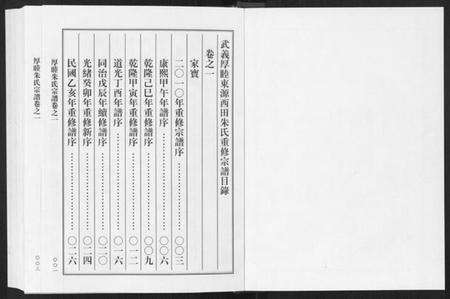 武義厚睦東源西田朱氏重修宗譜目錄
卷之一
家寶
二〇一〇年重修宗譜序……〇〇三
康熙甲午年譜序……〇〇六
乾隆己巳年重修譜序……〇〇九
乾隆甲寅年重修譜序……〇一二
道光丁酉年譜序……〇一六
同治戊辰年續修譜序……〇二〇
光緒癸卯年重修新序……〇二四
民國乙亥年重修譜序……〇二六
厚睦朱氏宗譜卷之一
厚睦朱氏宗譜卷之一